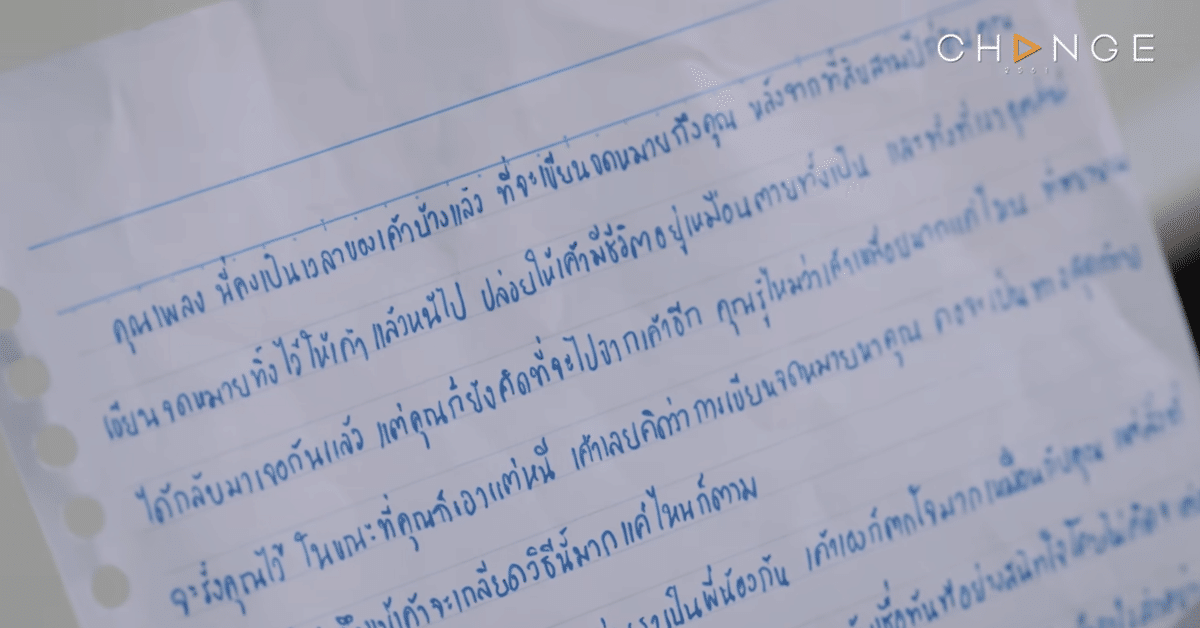 CHANGE
2561
คุณเพลง นี่คงเป็นเวลาของเค้าบ้างแล้ว ที่จะเขียนจดหมายถึงคุณ หลังจากที่สิบสามปีก่อนคุณ
เขียนจดหมายทิ้งไว้ให้เค้า แล้วหนีไป ปล่อยให้เค้ามีชีวิตอยู่เหมือนตายทั้งเป็น และทั้งที่เรา
ได้กลับมาเจอกันแล้ว แต่คุณก็ยังคิดที่จะไปจากเค้าอีก คุณรู้ไหมว่าเค้าเหนื่อยมากแค่ไหน
จะรั้งคุณไว้ ในขณะที่คุณก็เอาแต่หนี เค้าเลยคิดว่าการเขียนจดหมายหาคุณ คงจะเป็นทางสุดท้าย
เค้าจะเกลียดวิธีนี้มากแค่ไหนก็ตาม
เราเป็นพี่น้องกัน เค้าเองก็ตกใจมากเหมือนกับคุณ
เชื่อทันทีอย่างสนิทใจโดยไม่คิด